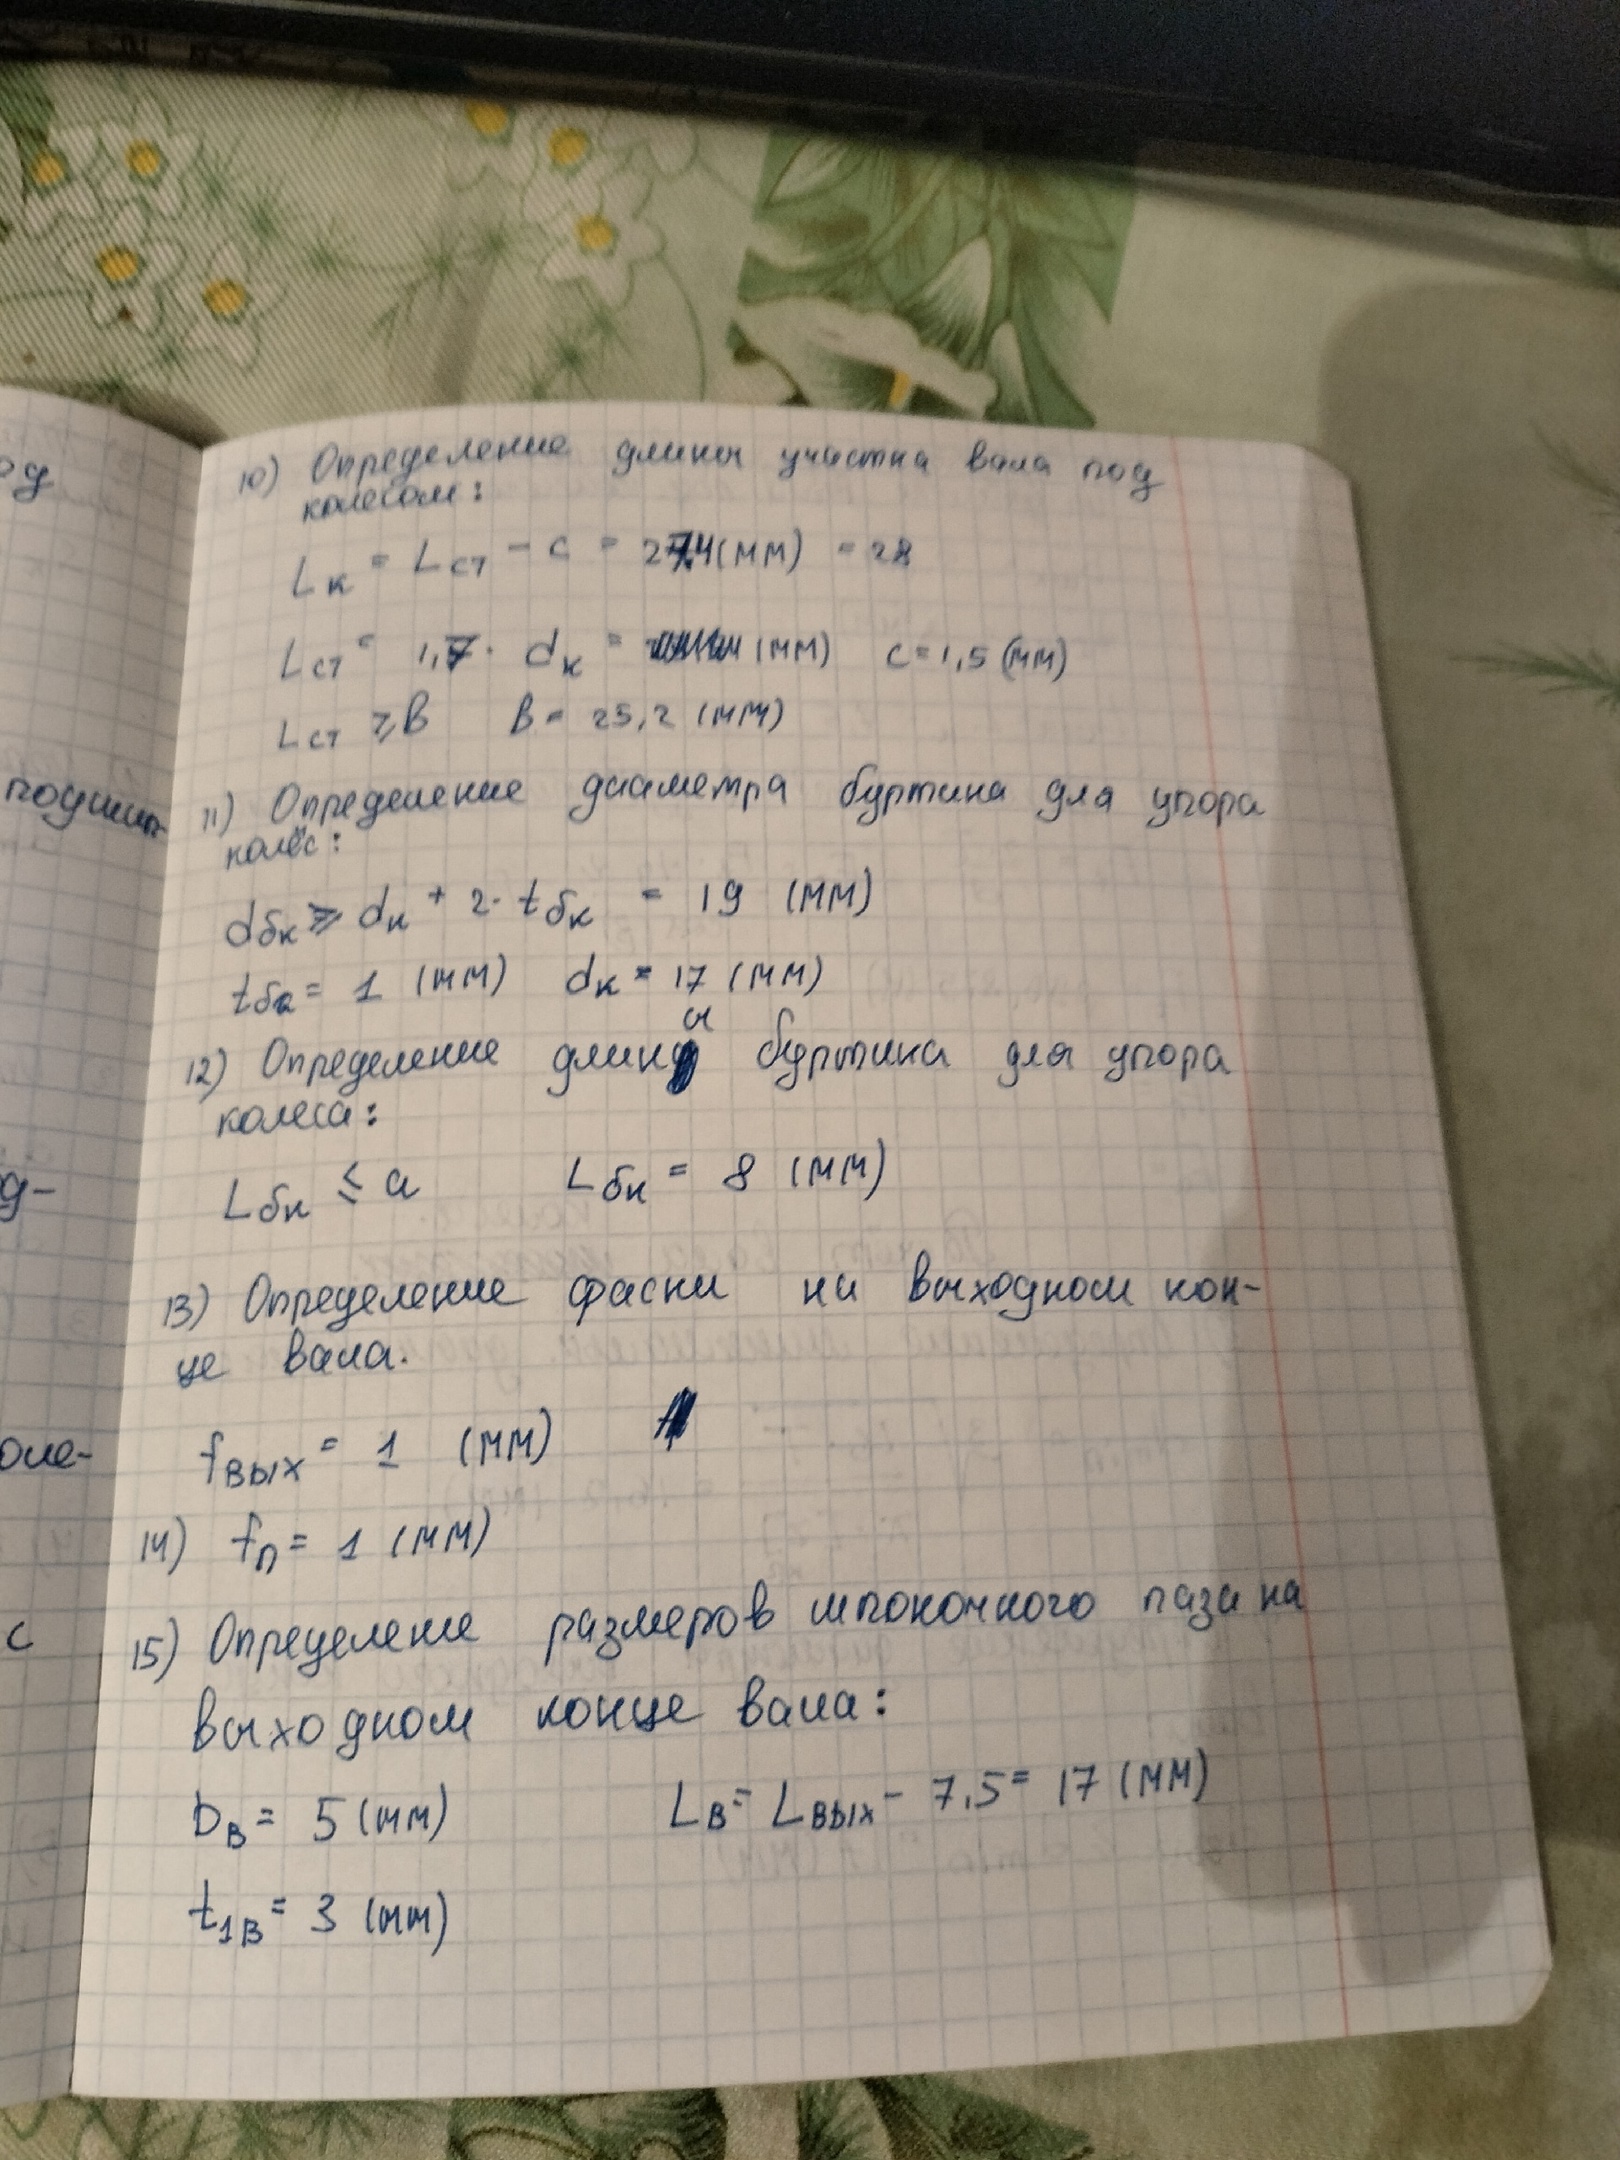 од
подшип-
д-
оле-
с
10) Определение длины участка вала под
колесом:
Lк = Lст - c = 27,4 (мм) = 28
Lст = 1,7 · dк = (мм) c = 1,5 (мм)
Lст ≥ B B = 25,2 (мм)
11) Определение диаметра буртика для упора
колёс:
dбк ≥ dк + 2 · tбк = 19 (мм)
tбк = 1 (мм) dк = 17 (мм)
12) Определение длины буртика для упора
колеса:
Lбк ≤ a Lбк = 8 (мм)
13) Определение фаски на выходном кон-
це вала.
fвых = 1 (мм)
14) fп = 1 (мм)
15) Определение размеров шпоночного паза на
выходном конце вала:
bв = 5 (мм) Lв = Lвых - 7,5 = 17 (мм)
t1в = 3 (мм)